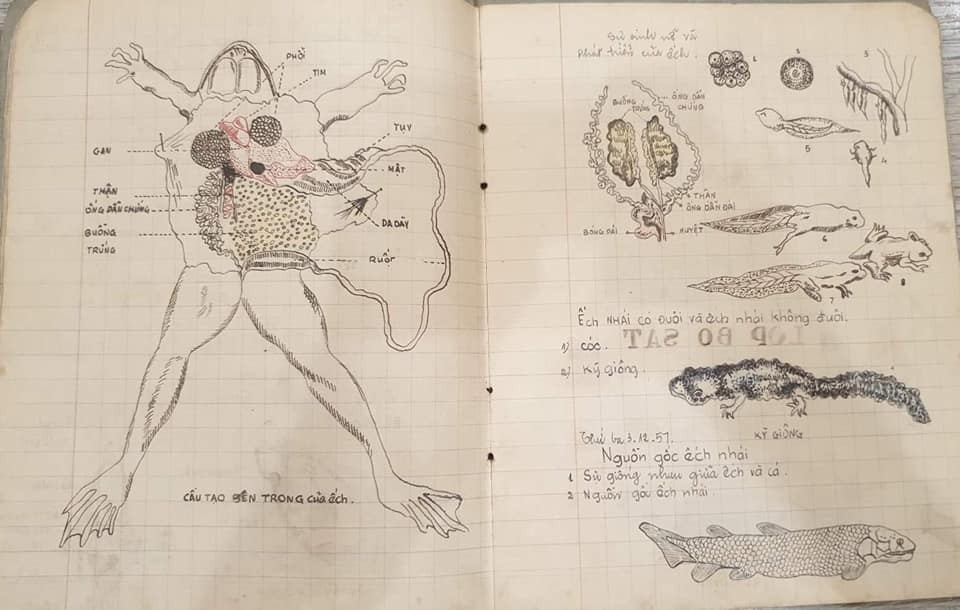 PHỔI
TIM
TỤY
GAN
MẬT
THẬN
ỐNG DẪN CHỨNG
DA DÀY
BUỒNG
TRỨNG
RUỘT
CẤU TẠO BÊN TRONG CỦA ẾCH.
Sự sinh nở và
phát triển của ếch.
1
2
3
BUỒNG
TRỨNG
ỐNG DẪN
CHỨNG
5
4
THẬN
ỐNG DẪN ĐÁI
BÓNG ĐÁI
HUYỆT
6
7
8
Ếch NHÁI CÓ ĐUÔI và ếch nhái không đuôi.
LỚP BÒ SÁT
1) CÓC.
2) Kỳ giông.
KỲ GIÔNG
Thứ ba 3.12.57.
Nguồn gốc ếch nhái
1 Sự giống nhau giữa ếch và cá.
2 Nguồn gốc ếch nhái.